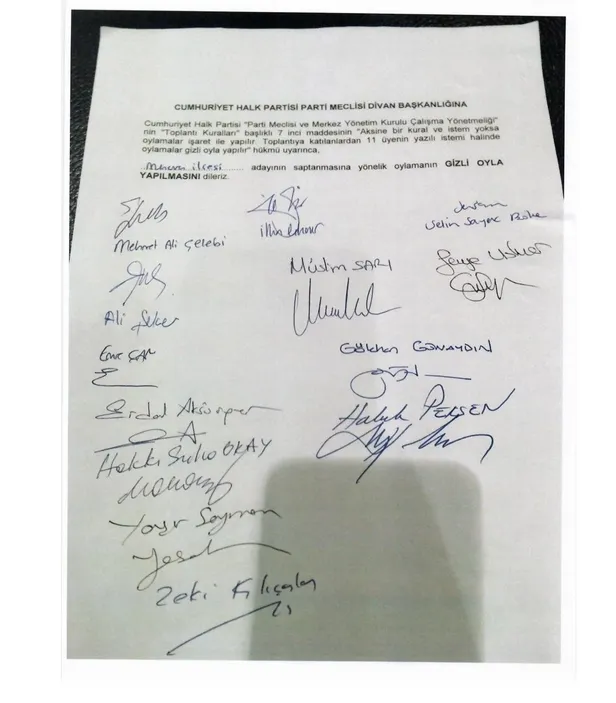 CUMHURİYET HALK PARTİSİ PARTİ MECLİSİ DİVAN BAŞKANLIĞINA
Cumhuriyet Halk Partisi "Parti Meclisi ve Merkez Yönetim Kurulu Çalışma Yönetmeliği"
'nin "Toplantı Kuralları" başlıklı 7 inci maddesinin "Aksine bir kural ve istem yoksa
oylamalar işaret ile yapılır. Toplantıya katılanlardan 11 üyenin yazılı istemi halinde
oylamalar gizli oyla yapılır" hükmü uyarınca,
ilçesi........ adayının saptanmasına yönelik oylamanın GİZLİ OYLA
YAPILMASINI dileriz.
Mehmet Ali Çelebi
Selin Sayek Böke
Müslim SARI
Ali Şeker
Emre ÇAM
Gökhan GÜNAYDIN
Erdal Aksünger
Haluk PEKŞEN
Hakkı Süha OKAY
Yaşar Seyman
Zeki Kılıçaslan